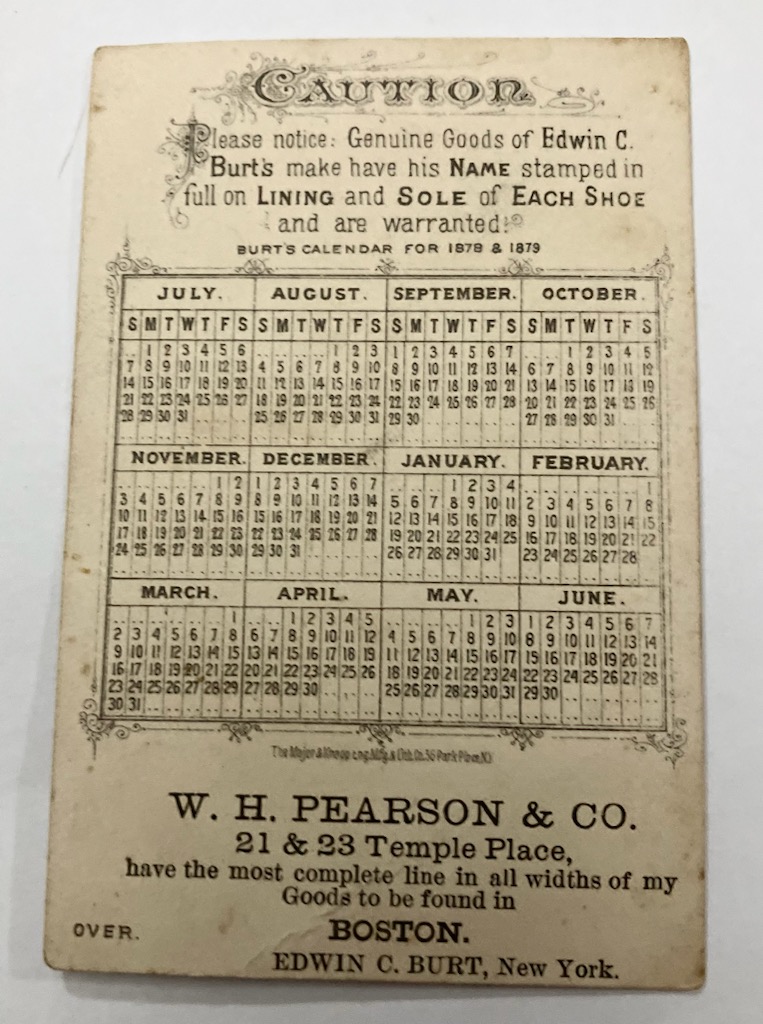 CAUTION
Please notice: Genuine Goods of Edwin C.
Burt's make have his NAME stamped in
full on LINING and SOLE of EACH SHOE
and are warranted:
BURT'S CALENDAR FOR 1878 & 1879
JULY. AUGUST. SEPTEMBER. OCTOBER.
S M T W T F S S M T W T F S S M T W T F S S M T W T F S
1 2 3 4 5 6 1 2 3 1 2 3 4 5 6 7 1 2 3 4 5
7 8 9 10 11 12 13 4 5 6 7 8 9 10 8 9 10 11 12 13 14 6 7 8 9 10 11 12
14 15 16 17 18 19 20 11 12 13 14 15 16 17 15 16 17 18 19 20 21 13 14 15 16 17 18 19
21 22 23 24 25 26 27 18 19 20 21 22 23 24 22 23 24 25 26 27 28 20 21 22 23 24 25 26
28 29 30 31 25 26 27 28 29 30 31 29 30 27 28 29 30 31
NOVEMBER. DECEMBER. JANUARY. FEBRUARY.
1 2 1 2 3 4 5 6 7 1 2 3 4 1
3 4 5 6 7 8 9 8 9 10 11 12 13 14 5 6 7 8 9 10 11 2 3 4 5 6 7 8
10 11 12 13 14 15 16 15 16 17 18 19 20 21 12 13 14 15 16 17 18 9 10 11 12 13 14 15
17 18 19 20 21 22 23 22 23 24 25 26 27 28 19 20 21 22 23 24 25 16 17 18 19 20 21 22
24 25 26 27 28 29 30 29 30 31 26 27 28 29 30 31 23 24 25 26 27 28
MARCH. APRIL. MAY. JUNE.
1 1 2 3 4 5 1 2 3 1 2 3 4 5 6 7
2 3 4 5 6 7 8 6 7 8 9 10 11 12 4 5 6 7 8 9 10 8 9 10 11 12 13 14
9 10 11 12 13 14 15 13 14 15 16 17 18 19 11 12 13 14 15 16 17 15 16 17 18 19 20 21
16 17 18 19 20 21 22 20 21 22 23 24 25 26 18 19 20 21 22 23 24 22 23 24 25 26 27 28
23 24 25 26 27 28 29 27 28 29 30 25 26 27 28 29 30 31 29 30
30 31
The Major & Knapp Eng. Mfg. & Lith. Co. 56 Park Place N.Y.
W. H. PEARSON & CO.
21 & 23 Temple Place,
have the most complete line in all widths of my
Goods to be found in
OVER. BOSTON.
EDWIN C. BURT, New York.